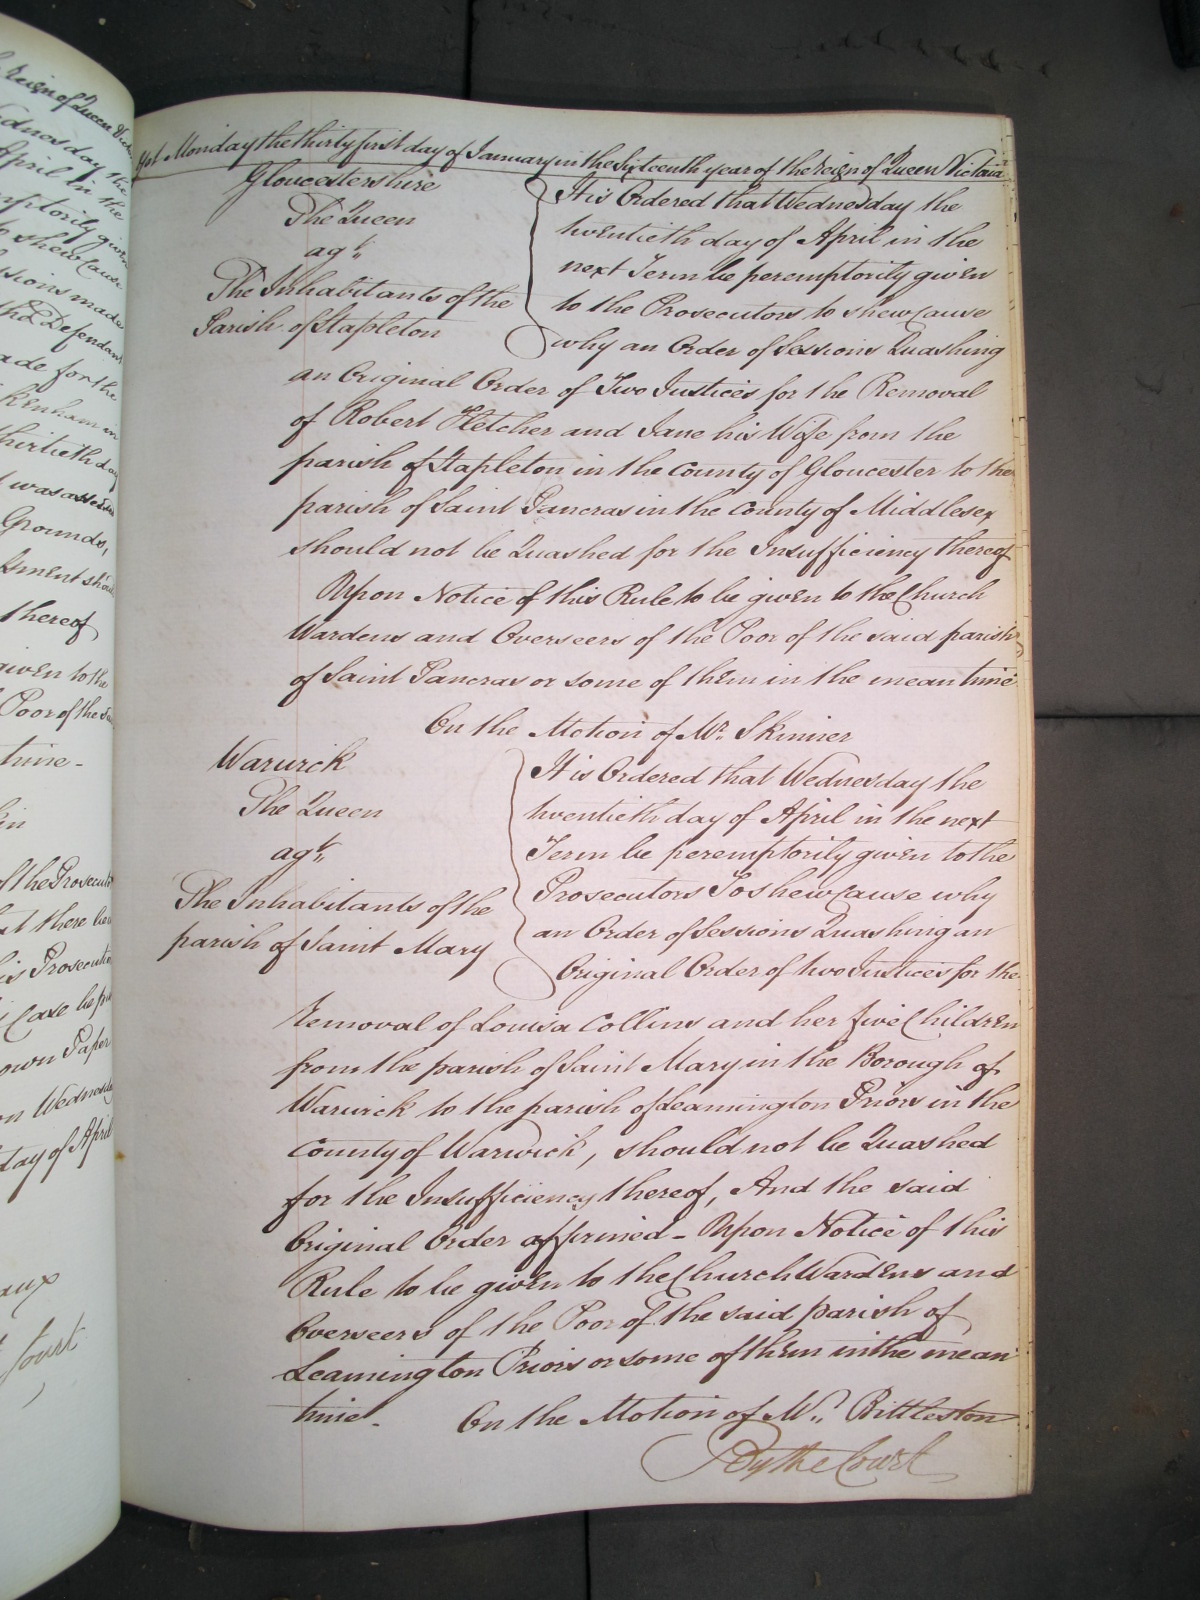 Yet Monday the thirty first day of January in the Sixteenth year of the reign of Queen Victoria
Gloucestershire
The Queen
agt
The Inhabitants of the
Parish of Stapleton
It is Ordered that Wednesday the
twentieth day of April in the
next Term be peremptorily given
to the Prosecutors to shew Cause
why an Order of Sessions Quashing
an Original Order of Two Justices for the Removal
of Robert Fletcher and Jane his Wife from the
parish of Stapleton in the County of Gloucester to the
parish of Saint Pancras in the County of Middlesex
should not be Quashed for the Insufficiency thereof
Upon Notice of this Rule to be given to the Church
Wardens and Overseers of the Poor of the said parish
of Saint Pancras or some of them in the mean time
On the Motion of Mr. Skinner
Warwick
The Queen
agt
The Inhabitants of the
parish of Saint Mary
It is Ordered that Wednesday the
twentieth day of April in the next
Term be peremptorily given to the
Prosecutors To shew Cause why
an Order of Sessions Quashing an
Original Order of two Justices for the
removal of Louisa Collins and her five Children
from the parish of Saint Mary in the Borough of
Warwick to the parish of Leamington Priors in the
County of Warwick, should not be Quashed
for the Insufficiency thereof, And the said
Original Order affirmed - Upon Notice of this
Rule to be given to the Church Wardens and
Overseers of the Poor of the said parish of
Leamington Priors or some of them in the mean
time - On the Motion of Mr. Bittleston
By the Court